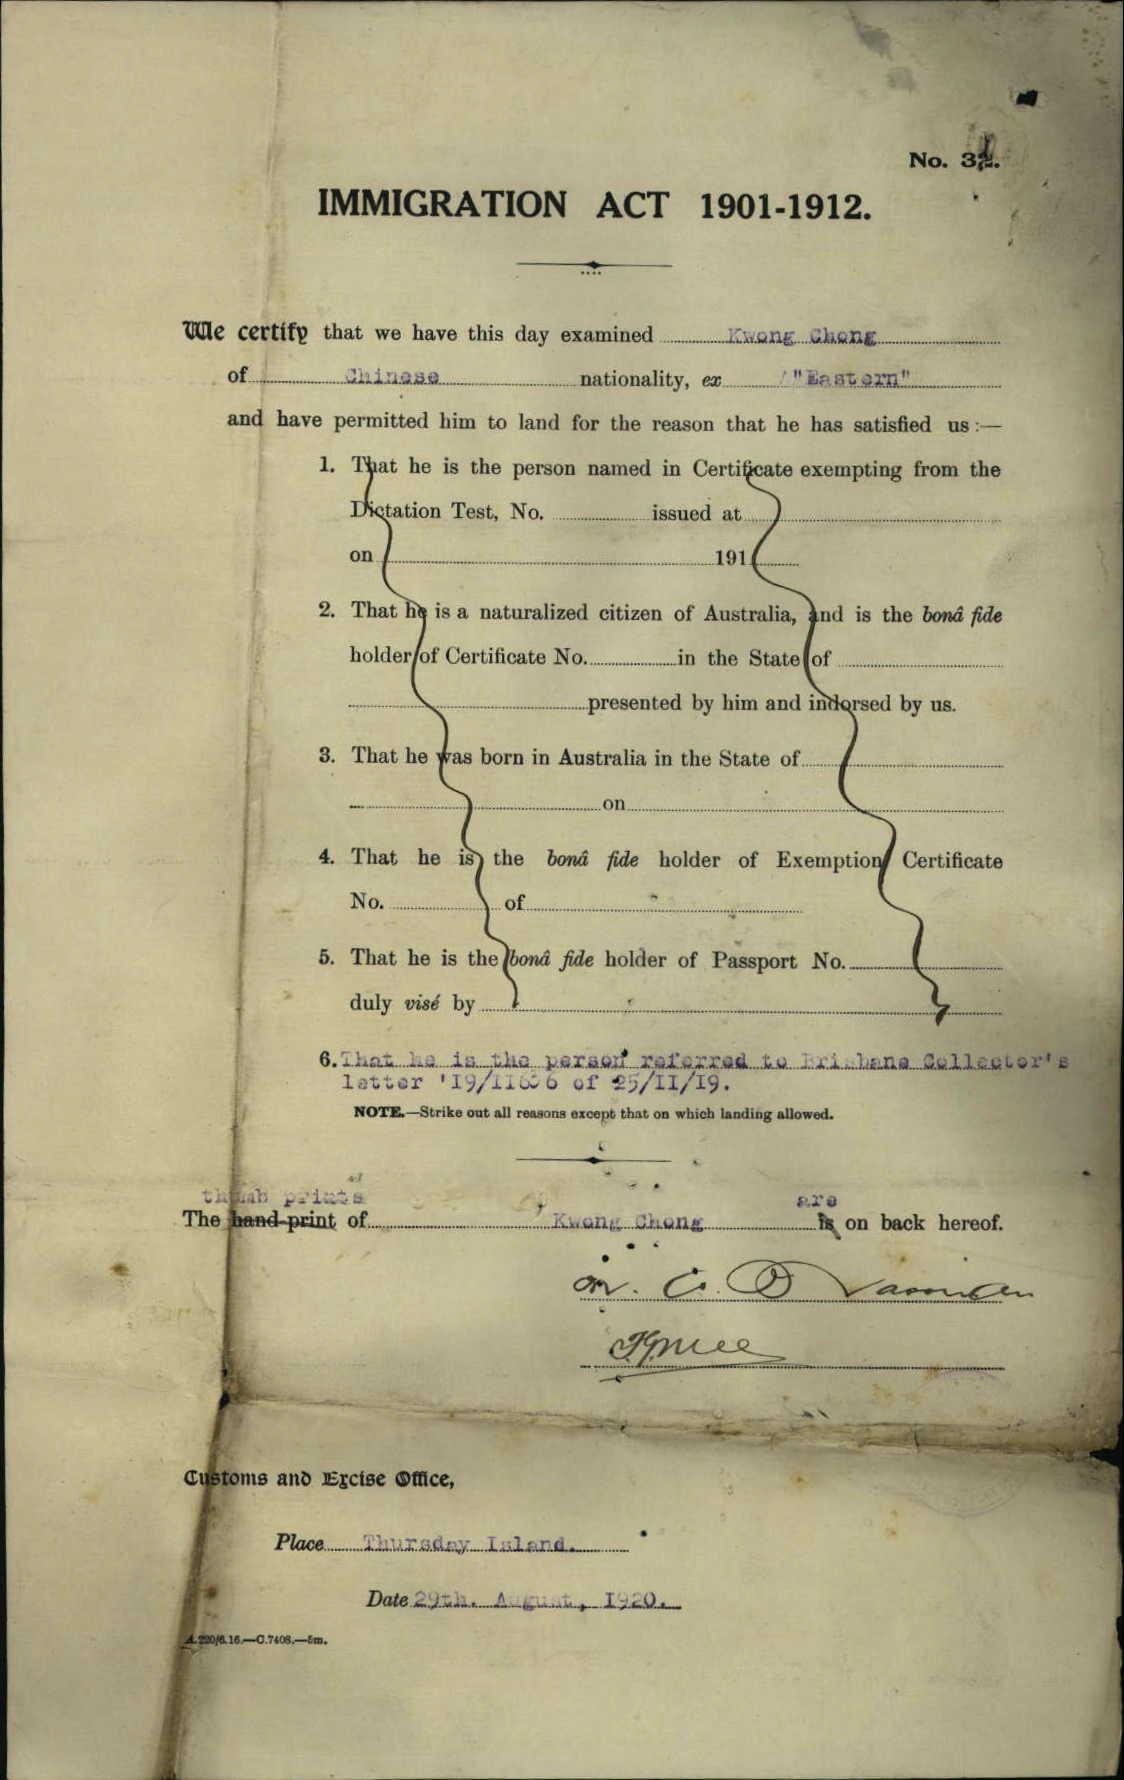 No. 32.
IMMIGRATION ACT 1901-1912.
We certify that we have this day examined Kwong Chong
of Chinese nationality, ex "Eastern"
and have permitted him to land for the reason that he has satisfied us:—
1. That he is the person named in Certificate exempting from the
Dictation Test, No. issued at
on 191
2. That he is a naturalized citizen of Australia, and is the bonâ fide
holder of Certificate No. in the State of
presented by him and indorsed by us.
3. That he was born in Australia in the State of
on
4. That he is the bonâ fide holder of Exemption Certificate
No. of
5. That he is the bonâ fide holder of Passport No.
duly visé by
6. That he is the person referred to Brisbane Collector's
letter of 25/II/I9.
NOTE.—Strike out all reasons except that on which landing allowed.
thumb prints are
The hand-print of Kwong Chong is on back hereof.
Customs and Excise Office,
Place Thursday Island.
Date 29th. August, I920.
A.220/6.16.—C.7408.—5m.